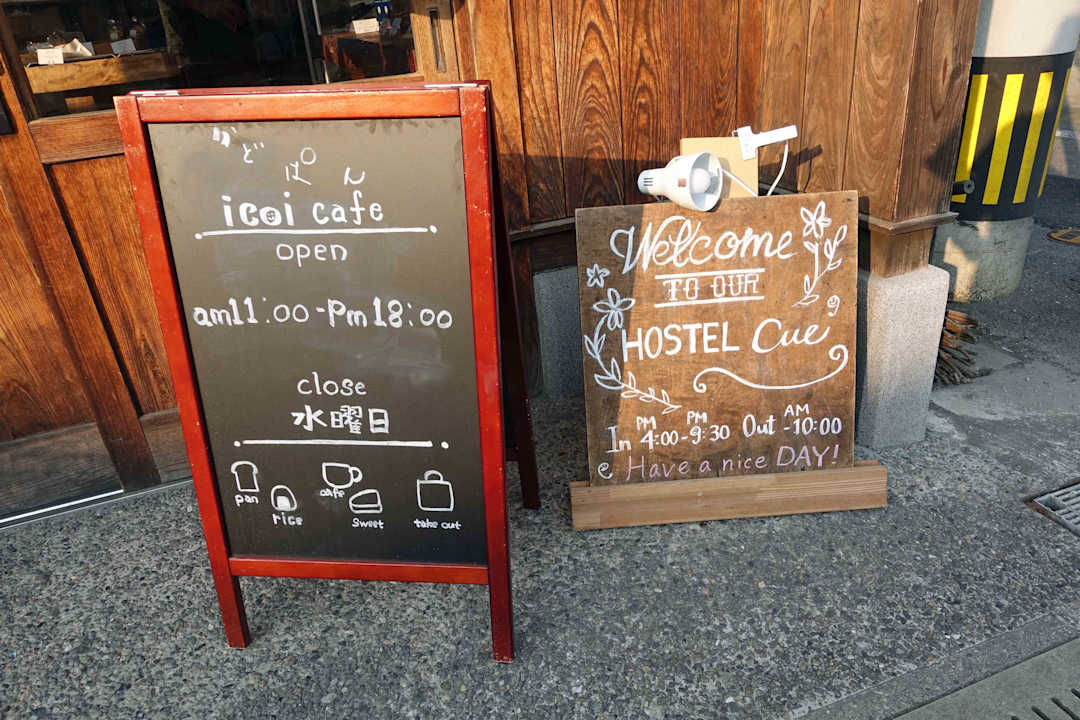 かどぱん
icoi cafe
open
am11:00-Pm18:00
close
水曜日
pan
rice
cafe
Sweet
take out
Welcome
TO OUR
HOSTEL Cue
In PM 4:00-PM 9:30 Out AM -10:00
Have a nice DAY!